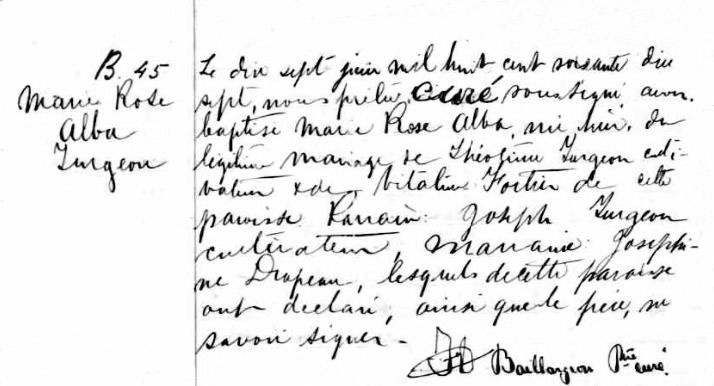 B. 45
Marie Rose
Alba
Turgeon
Le dix sept juin mil huit cent soixante dix
sept, nous prêtre, curé soussigné avons
baptisé Marie Rose Alba, née hier, du
légitime mariage de Théotime Turgeon culti-
vateur & de Vitaline Fortier de cette
paroisse. Parrain: Joseph Turgeon
cultivateur, marraine: Josephi-
ne Drapeau, lesquels de cette paroisse
ont déclaré, ainsi que le père, ne
savoir signer -
Baillargeon Ptre
curé.